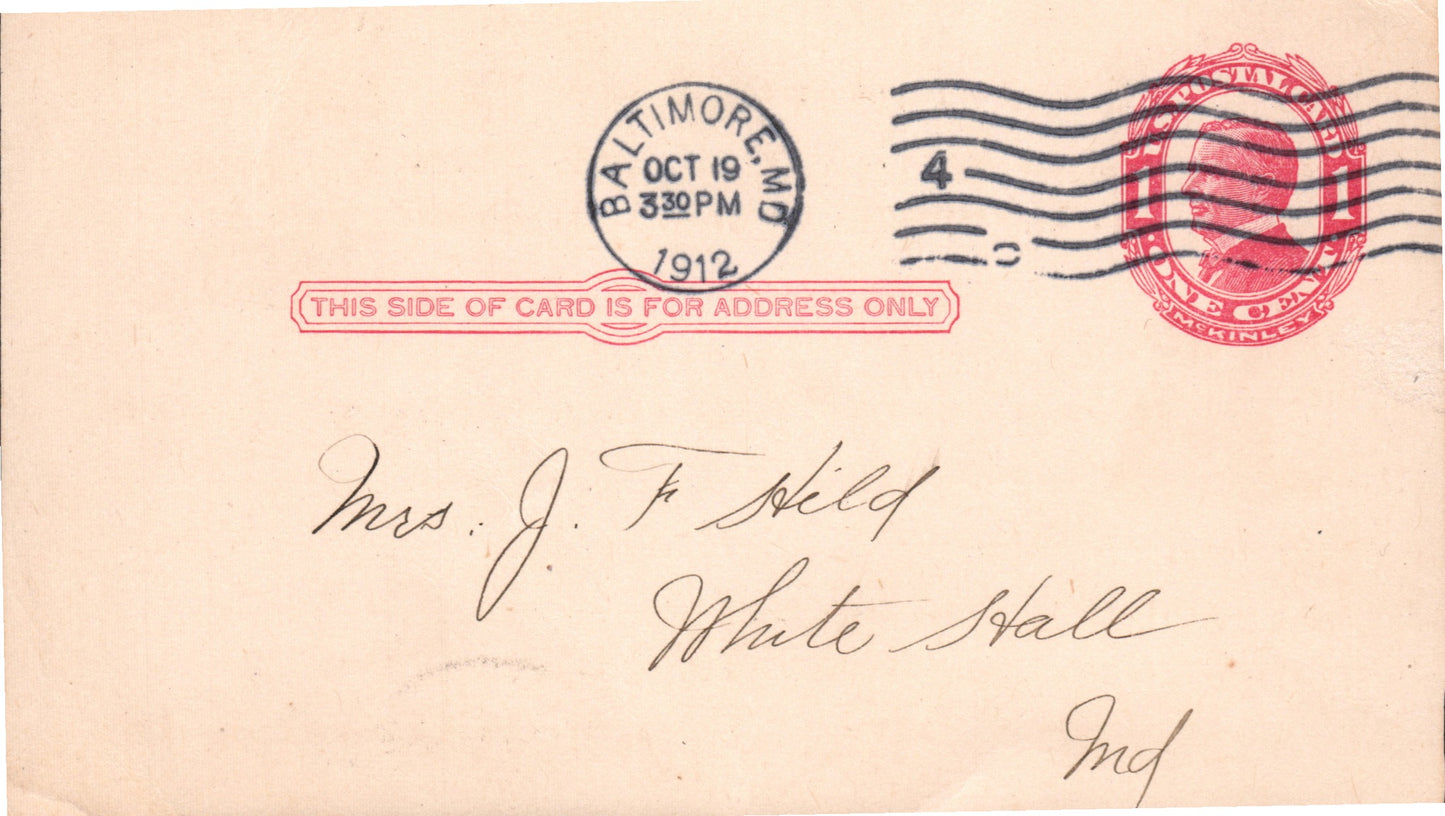 BALTIMORE, MD
OCT 19
3 30 PM
1912
4
U.S. POSTAL CARD
1 1
ONE CENT
McKINLEY
THIS SIDE OF CARD IS FOR ADDRESS ONLY
Mrs. J. F Hild
White Hall
Md